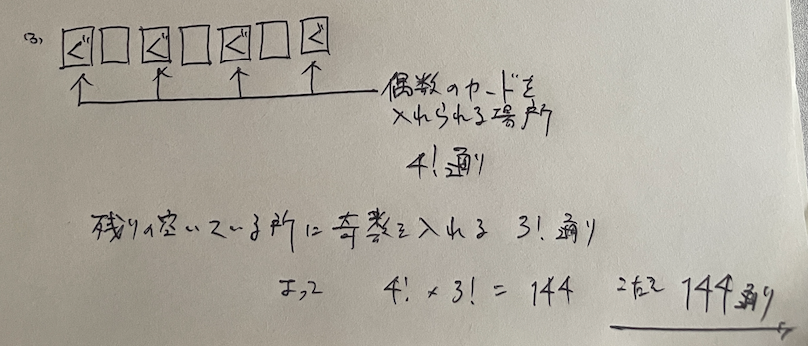 (3)
ぐ ぐ ぐ ぐ
偶数のカードを
入れられる場所
4!通り
残りの空いている所に奇数を入れる 3!通り
よって 4! × 3! = 144 こたえ 144通り